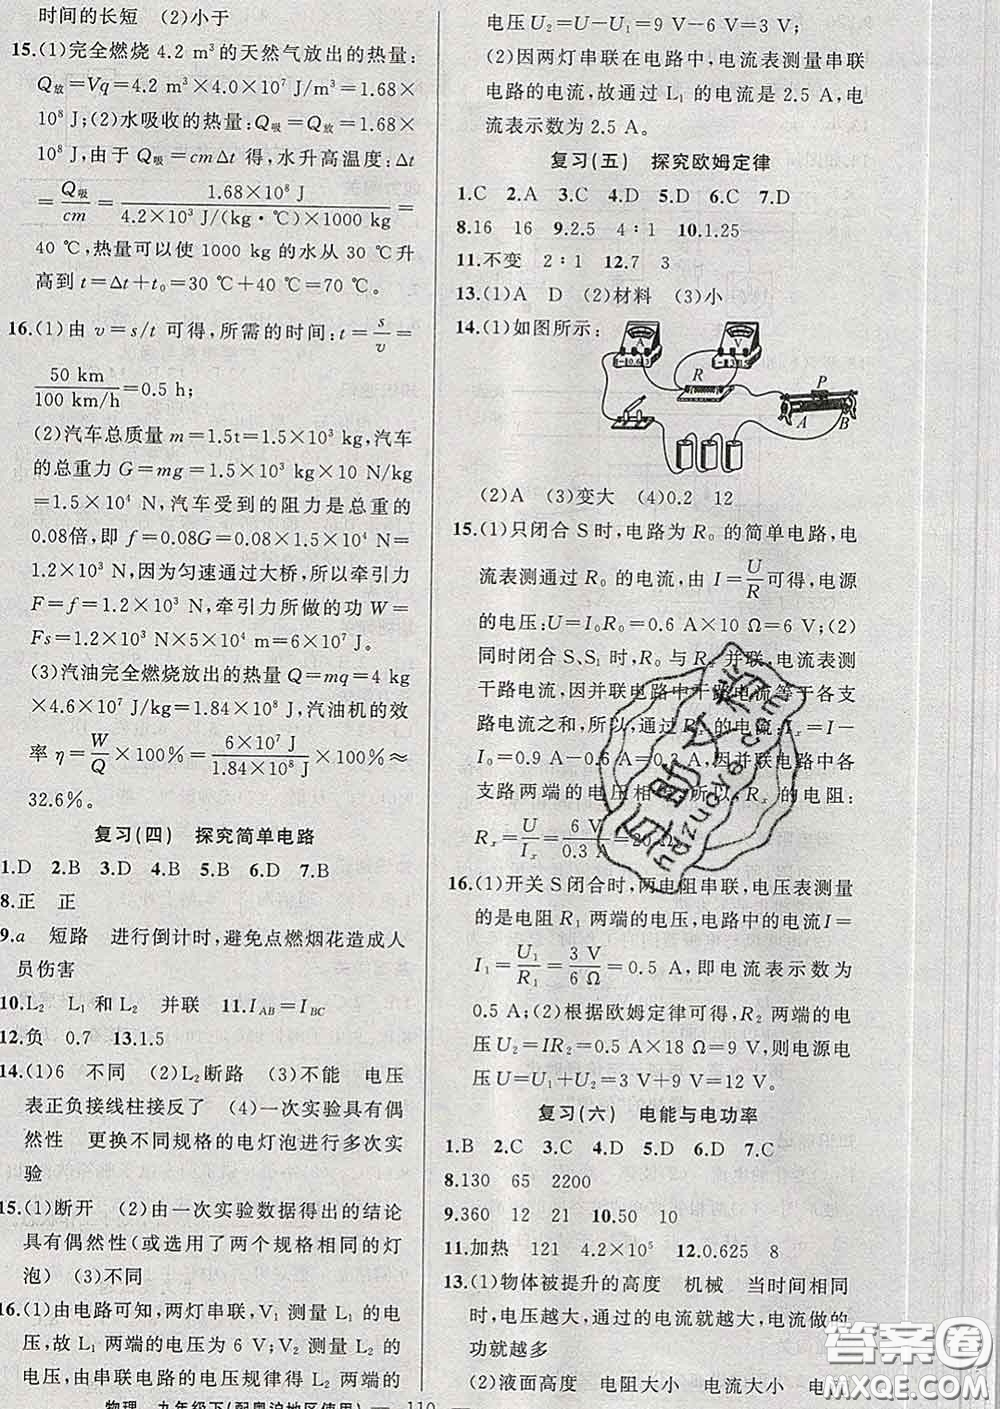 时间的长短 (2)小于
15.(1)完全燃烧 4.2 m³的天然气放出的热量:
Q放=Vq=4.2 m³×4.0×10⁷ J/m³=1.68×
10⁸ J;(2)水吸收的热量:Q吸=Q放=1.68×
10⁸ J,由于 Q吸=cmΔt 得,水升高温度:Δt
=Q吸/cm=1.68×10⁸ J/4.2×10³ J/(kg·℃)×1000 kg=
40 ℃,热量可以使 1000 kg 的水从 30 ℃升
高到 t=Δt+t₀=30 ℃+40 ℃=70 ℃。
16.(1)由 v=s/t 可得,所需的时间:t=s/v=
50 km/100 km/h=0.5 h;
(2)汽车总质量 m=1.5t=1.5×10³ kg,汽车
的总重力 G=mg=1.5×10³ kg×10 N/kg
=1.5×10⁴ N,汽车受到的阻力是总重的
0.08倍,即 f=0.08G=0.08×1.5×10⁴ N=
1.2×10³ N,因为匀速通过大桥,所以牵引力
F=f=1.2×10³ N,牵引力所做的功 W=
Fs=1.2×10³ N×5×10⁴ m=6×10⁷ J。
(3)汽油完全燃烧放出的热量 Q=mq=4 kg
×4.6×10⁷ J/kg=1.84×10⁸ J,汽油机的效
率 η=W/Q×100%=6×10⁷ J/1.84×10⁸ J×100%≈
32.6%。
复习(四) 探究简单电路
1.D 2.B 3.D 4.B 5.B 6.D 7.B
8.正 正
9.a 短路 进行倒计时,避免点燃烟花造成人
员伤害
10.L₂ L₁ 和 L₂ 并联 11.I_AB=I_BC
12.负 0.7 13.1.5
14.(1)6 不同 (2)L₂断路 (3)不能 电压
表正负接线柱接反了 (4)一次实验具有偶
然性 更换不同规格的电灯泡进行多次实
验
15.(1)断开 (2)由一次实验数据得出的结论
具有偶然性(或选用了两个规格相同的灯
泡) (3)不同
16.(1)由电路可知,两灯串联,V₁ 测量 L₁ 的电
压,故 L₁ 两端的电压为 6 V;V₂ 测量 L₂ 的
电压,由串联电路的电压规律得 L₂ 两端的
物理 九年级下(配粤沪地区使用) — 110 —
电压 U₂=U−U₁=9 V−6 V=3 V;
(2)因两灯串联在电路中,电流表测量串联
电路的电流,故通过 L₁ 的电流是 2.5 A,电
流表示数为 2.5 A。
复习(五) 探究欧姆定律
1.C 2.A 3.C 4.D 5.D 6.C 7.D
8.16 16 9.2.5 4∶1 10.1.25
11.不变 2∶1 12.7 3
13.(1)A D (2)材料 (3)小
14.(1)如图所示:
A V
R P
A B
(2)A (3)变大 (4)0.2 12
15.(1)只闭合 S 时,电路为 R₀ 的简单电路,电
流表测通过 R₀ 的电流,由 I=U/R可得,电源
的电压:U=I₀R₀=0.6 A×10 Ω=6 V;(2)
同时闭合 S、S₁ 时,R₀ 与 Rₓ 并联,电流表测
干路电流,因并联电路中干路电流等于各支
路电流之和,所以,通过 Rₓ 的电流:Iₓ=I−
I₀=0.9 A−0.6 A=0.3 A,因并联电路中各
支路两端的电压相等,所以,Rₓ 的电阻:
Rₓ=U/Iₓ=6 V/0.3 A=20 Ω
16.(1)开关 S 闭合时,两电阻串联,电压表测量
的是电阻 R₁ 两端的电压,电路中的电流 I=
I₁=U₁/R₁=3 V/6 Ω=0.5 A,即电流表示数为
0.5 A;(2)根据欧姆定律可得,R₂ 两端的电
压 U₂=IR₂=0.5 A×18 Ω=9 V,则电源电
压 U=U₁+U₂=3 V+9 V=12 V。
复习(六) 电能与电功率
1.B 2.C 3.C 4.D 5.D 6.D 7.C
8.130 65 2200
9.360 12 21 10.50 10
11.加热 121 4.2×10⁵ 12.0.625 8
13.(1)物体被提升的高度 机械 当时间相同
时,电压越大,通过的电流就越大,电流做的
功就越多
(2)液面高度 电阻大小 电流大小
答案圈